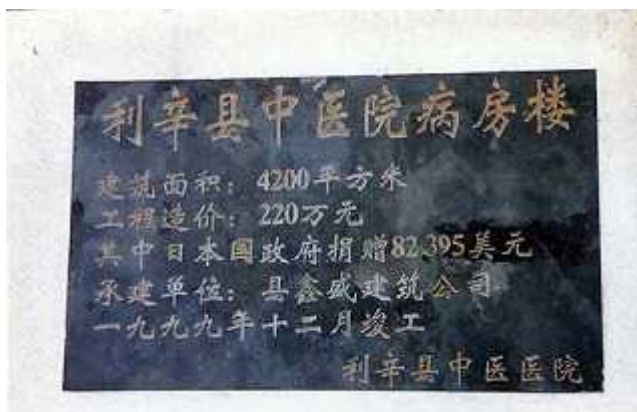 利辛县中医院病房楼
建筑面积：4200平方米
工程造价：220万元
其中日本國政府捐赠82,395美元
承建单位：县鑫盛建筑公司
一九九九年十二月竣工
利辛县中医医院